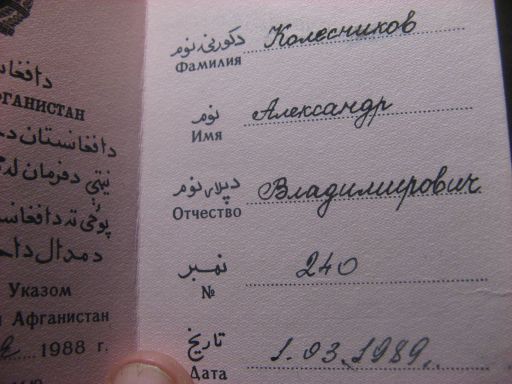 دافغا
ФГАНИСТАН
دافغانستان د
نيټې دفرمان له
پوځي ته دافغانس
دمدال داح
Указом
Афганистан
1988 г.
دکورنۍ نوم
Фамилия Колесников
نوم
Имя Александр
دپلار نوم
Отчество Владимирович
نمبر
№ 240
تاريخ
Дата 1.03.1989г.